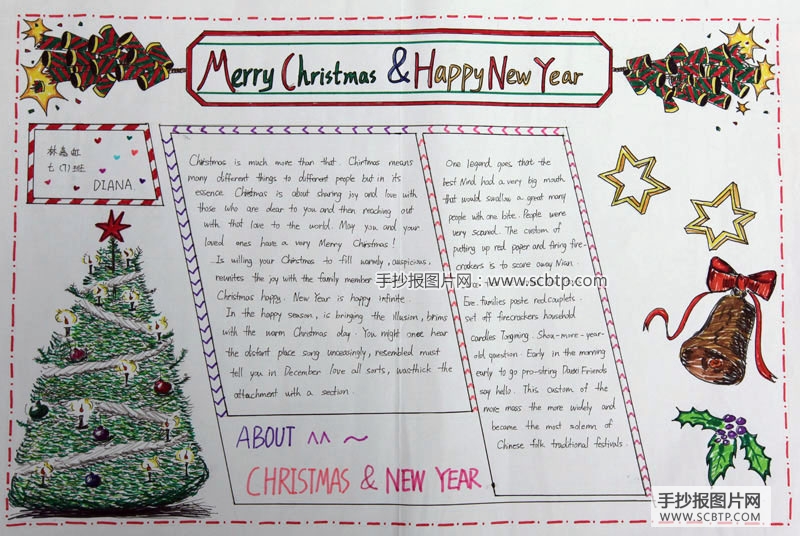 Merry Christmas & Happy New Year
林嘉虹
七(7)班
DIANA
Christmas is much more than that. Chirtmas means
many different things to different people but in its
essence Christmas is about sharing joy and love with
those who are dear to you and then reaching out
with that love to the world. May you and your
loved ones have a very Merry Christmas!
Is willing your Christmas to fill warmly, auspicious,
reunites the joy with the family member
Christmas happy. New Year is happy infinite.
In the happy season, is bringing the illusion, brims
with the warm Christmas day. You might once hear
the distant place song unceasingly, resembled must
tell you in December love all sorts, was thick the
attachment with a section.
One legend goes that the
best Nind had a very big mouth
that would swallow a great many
people with one bite. People were
very scared. The custom of
putting up red paper and firing fire-
crakers is to scare away Nian.
Eve. families paste red couplets.
set off firecrackers household
candles Tongming. Shou-more-year-
old question. Early in the morning
early to go pro-string Daao Friends
say hello. This custom of the
more mass the more widely and
became the most solemn of
Chinese folk traditional festivals.
手抄报图片网：www.scbtp.com
ABOUT ^^ ~
CHRISTMAS & NEW YEAR
手抄报图片网
WWW.SCBTP.COM